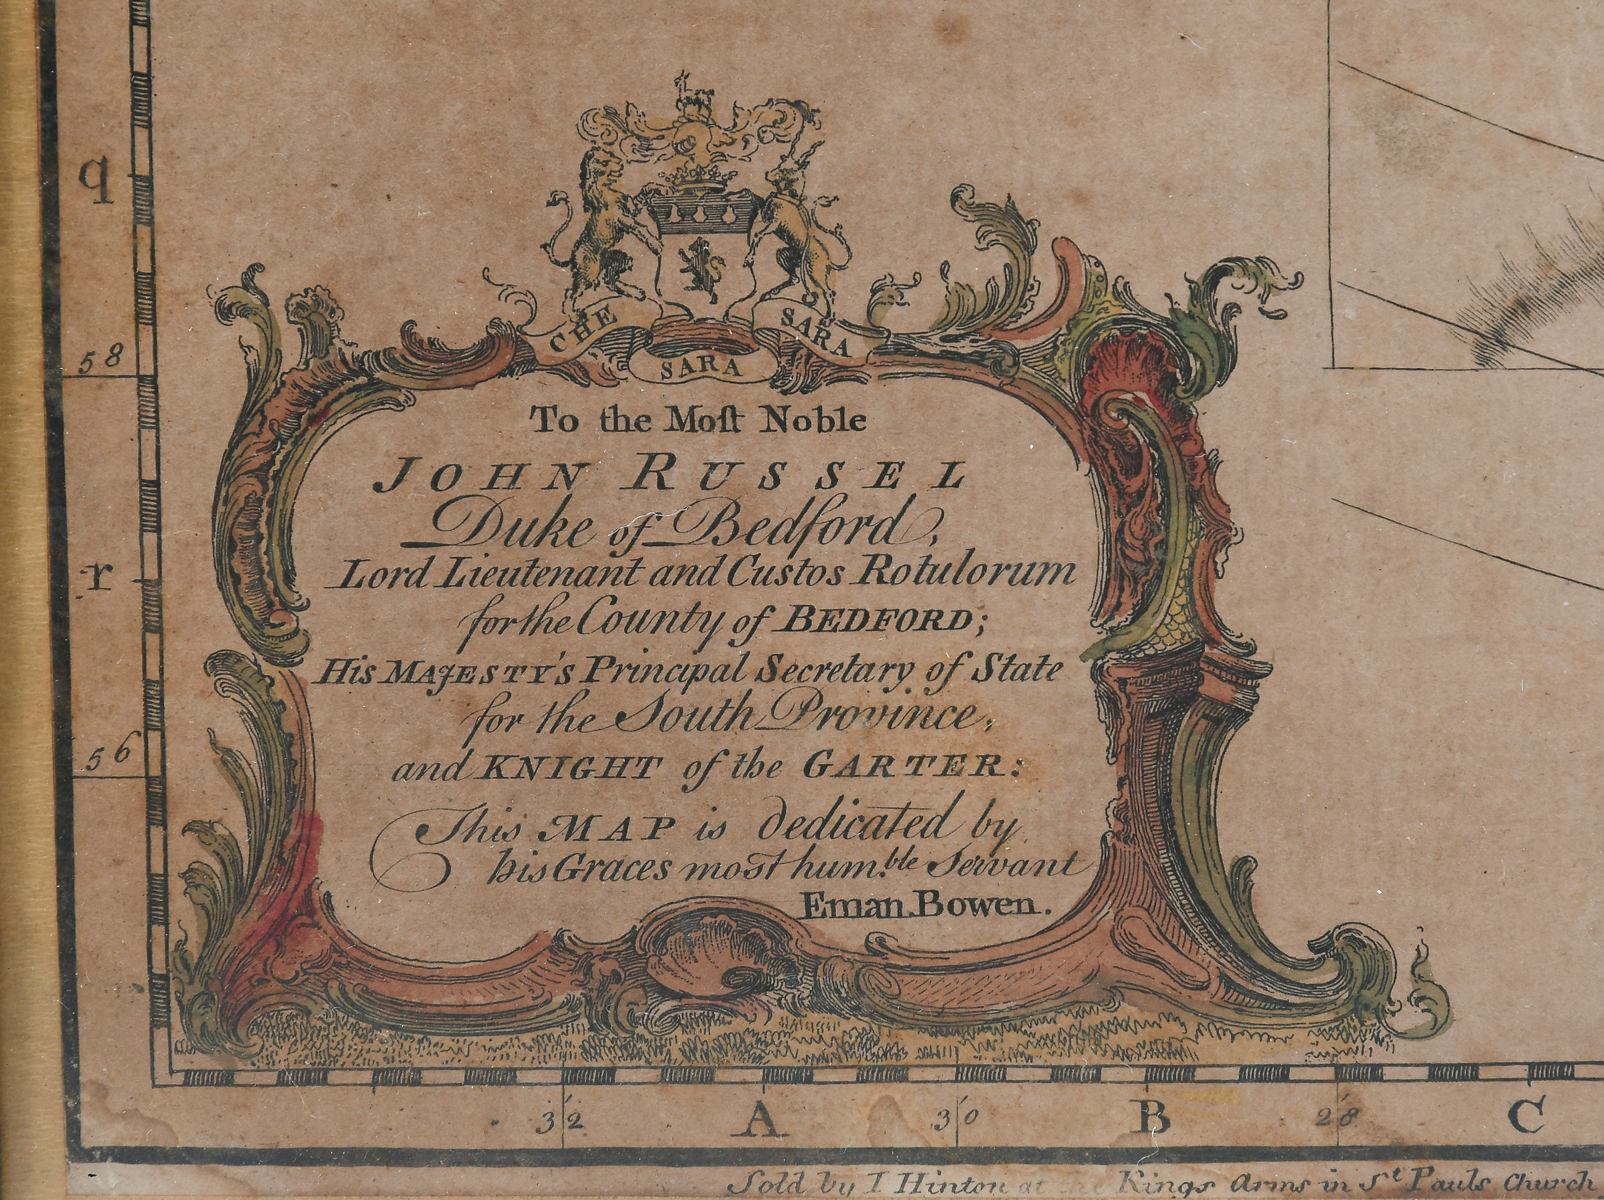 q
CHE SARA SARA
58
To the Moſt Noble
JOHN RUSSEL
Duke of Bedford,
Lord Lieutenant and Custos Rotulorum
r
for the County of BEDFORD;
His MAJESTY'S Principal Secretary of State
for the South Province,
56
and KNIGHT of the GARTER:
This MAP is dedicated by
his Graces most hum.ble Servant
Eman. Bowen.
32 A 30 B 28 C
Sold by I Hinton at the Kings Arms in St Pauls Church